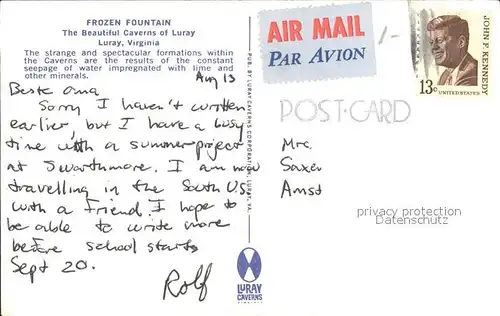 FROZEN FOUNTAIN
The Beautiful Caverns of Luray
Luray, Virginia
The strange and spectacular formations within
the Caverns are the results of the constant
seepage of water impregnated with lime and
other minerals.
Aug 13
Beste oma
Sorry I haven't written
earlier, but I have a busy
time with a summerproject
at Swarthmore. I am now
travelling in the South US
with a Friend. I hope to
be able to write more
before school starts
Sept 20.
Rolf
PUB. BY LURAY CAVERNS CORPORATION, LURAY, VA.
LURAY
CAVERNS
VIRGINIA
AIR MAIL
PAR AVION
1-
JOHN F. KENNEDY
13c
UNITED STATES
POST-CARD
Mrc.
Saxer
Amst
privacy protection
Datenschutz